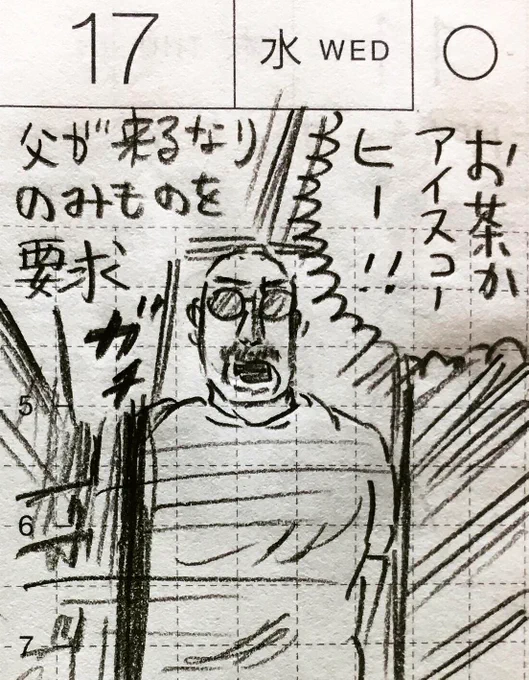 17
水 WED
○
お茶か
アイスコー
ヒー!!
父が来るなり
のみものを
要求
ガチ
5
6
7